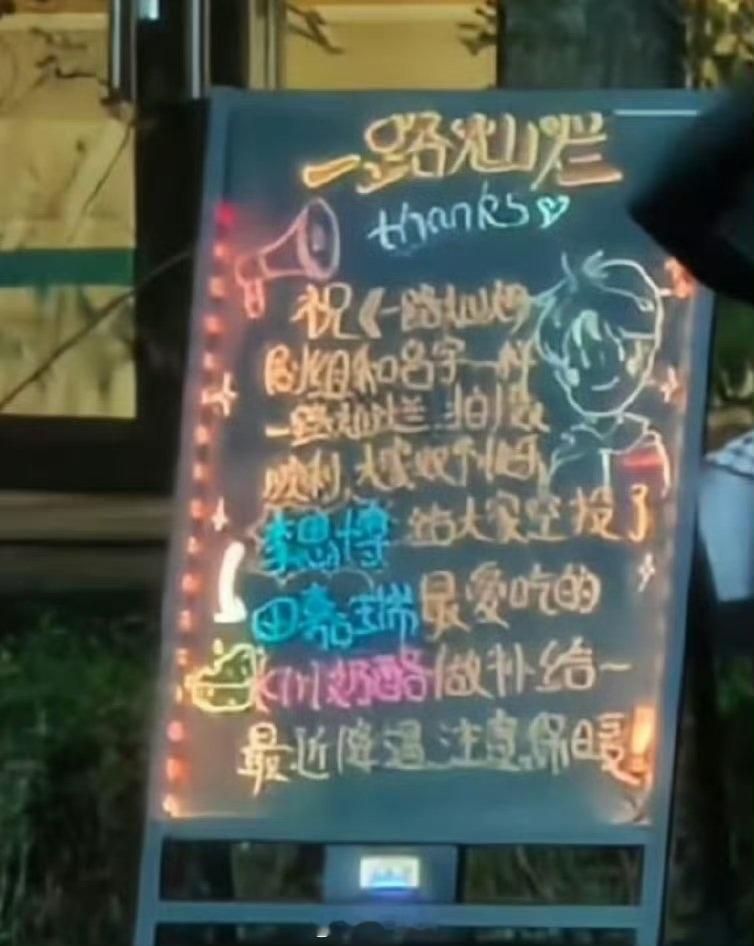 一路灿烂
thanks
祝《一路灿烂
剧组和名字一样
一路灿烂 拍摄
顺利,大家收个
李思博 给大家空投了
田嘉瑞最爱吃的
奶酪做补给~
最近降温 注意保暖